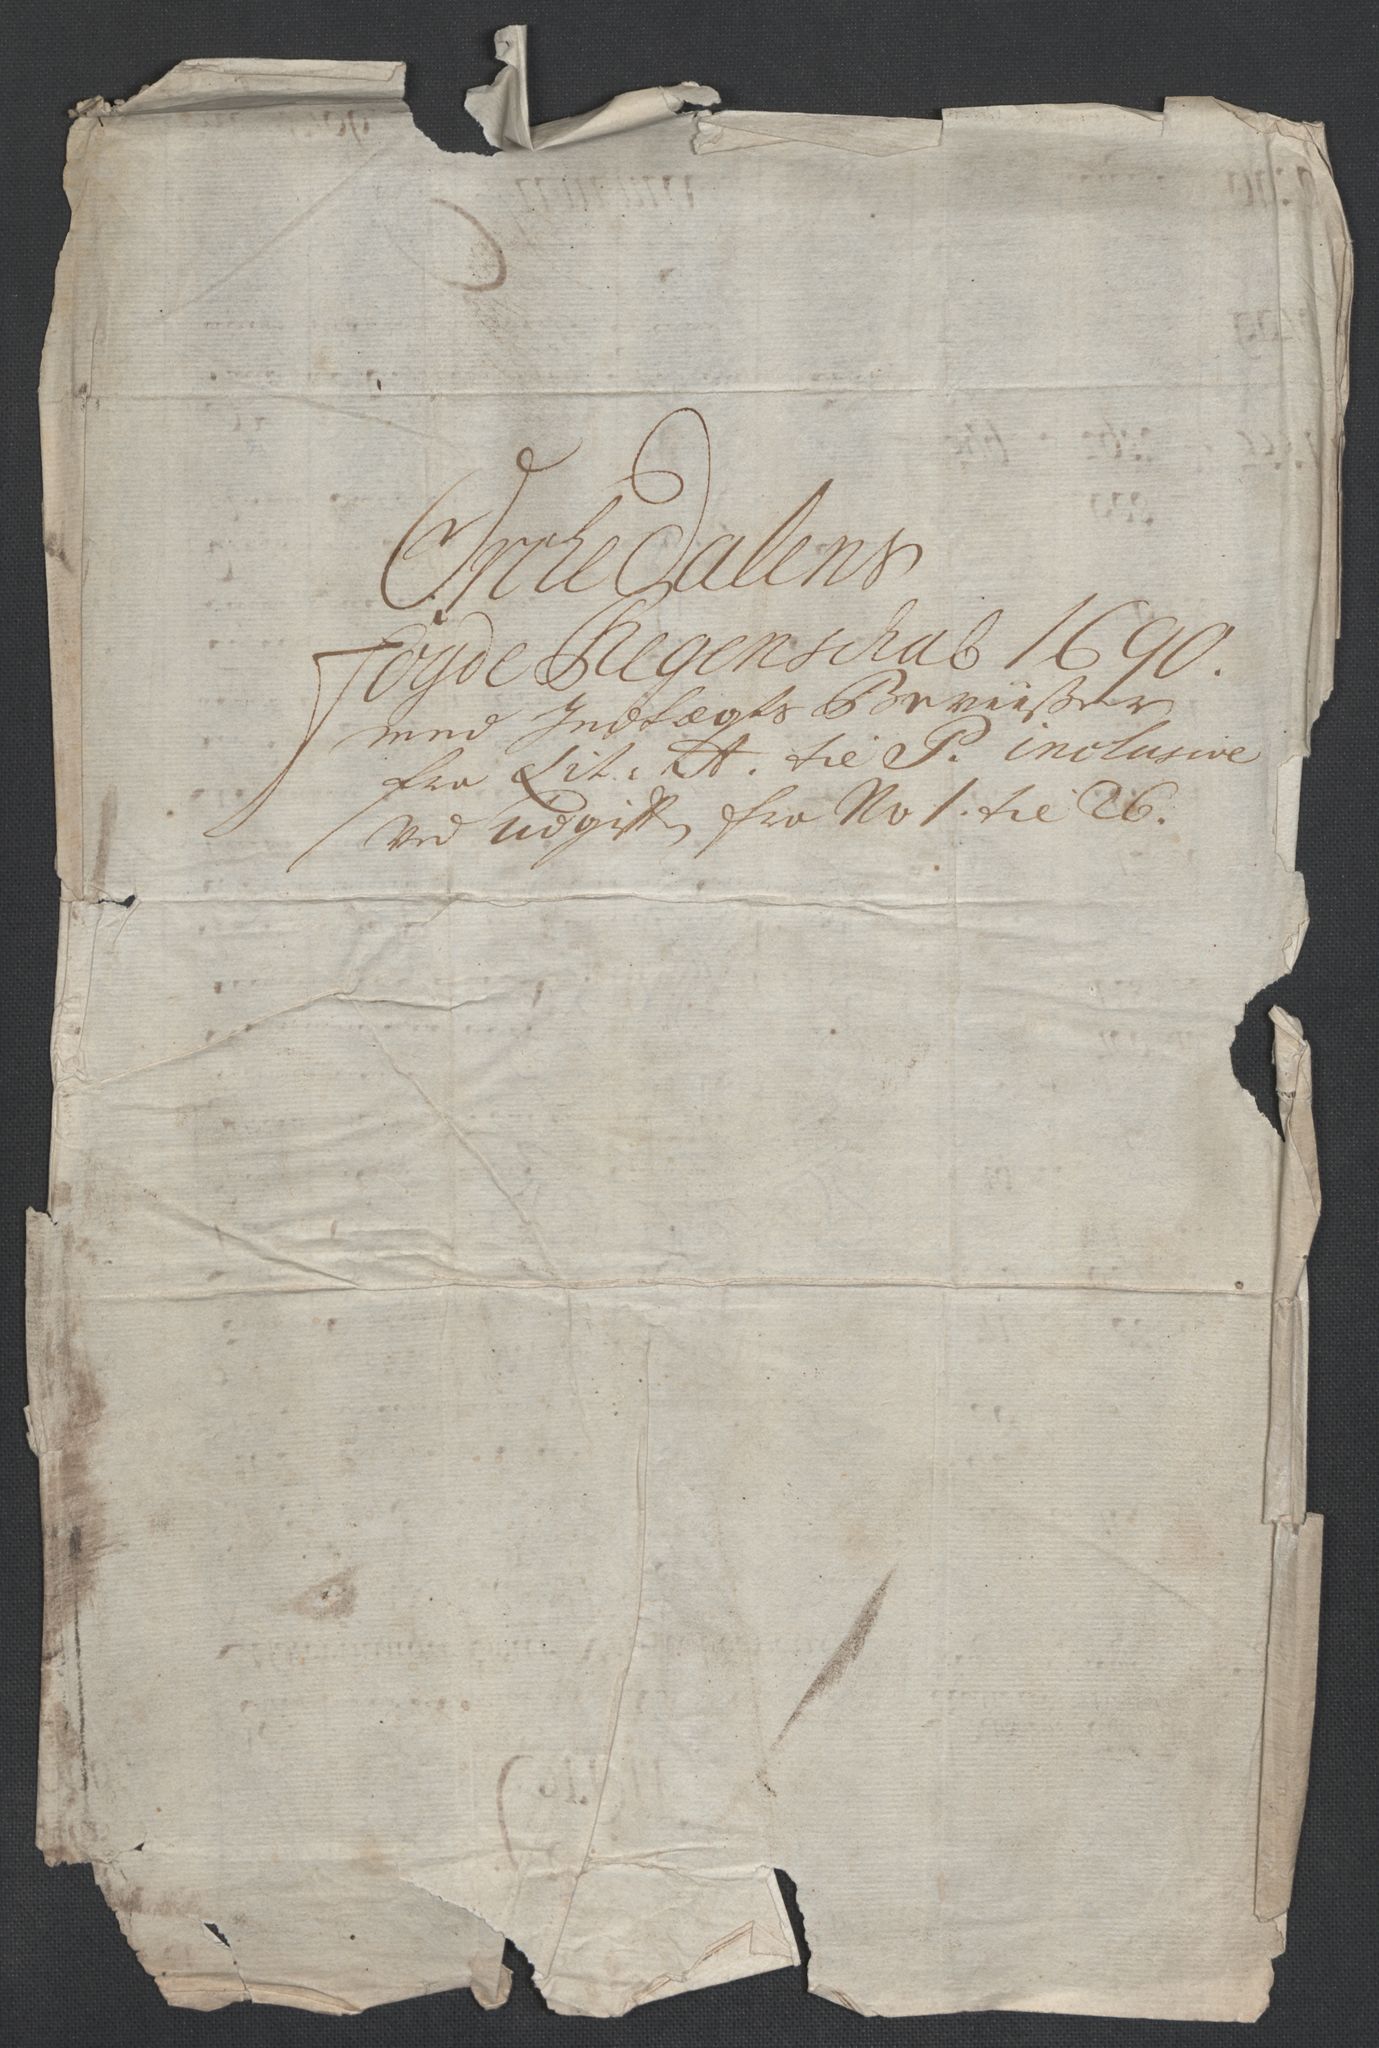 OrcheDalens
Fogde Regenschab 1690.
med Indtægts Beviißer
fra Lit. A. til P. inclusive
Ved Udgifft, fra No 1. til 26.